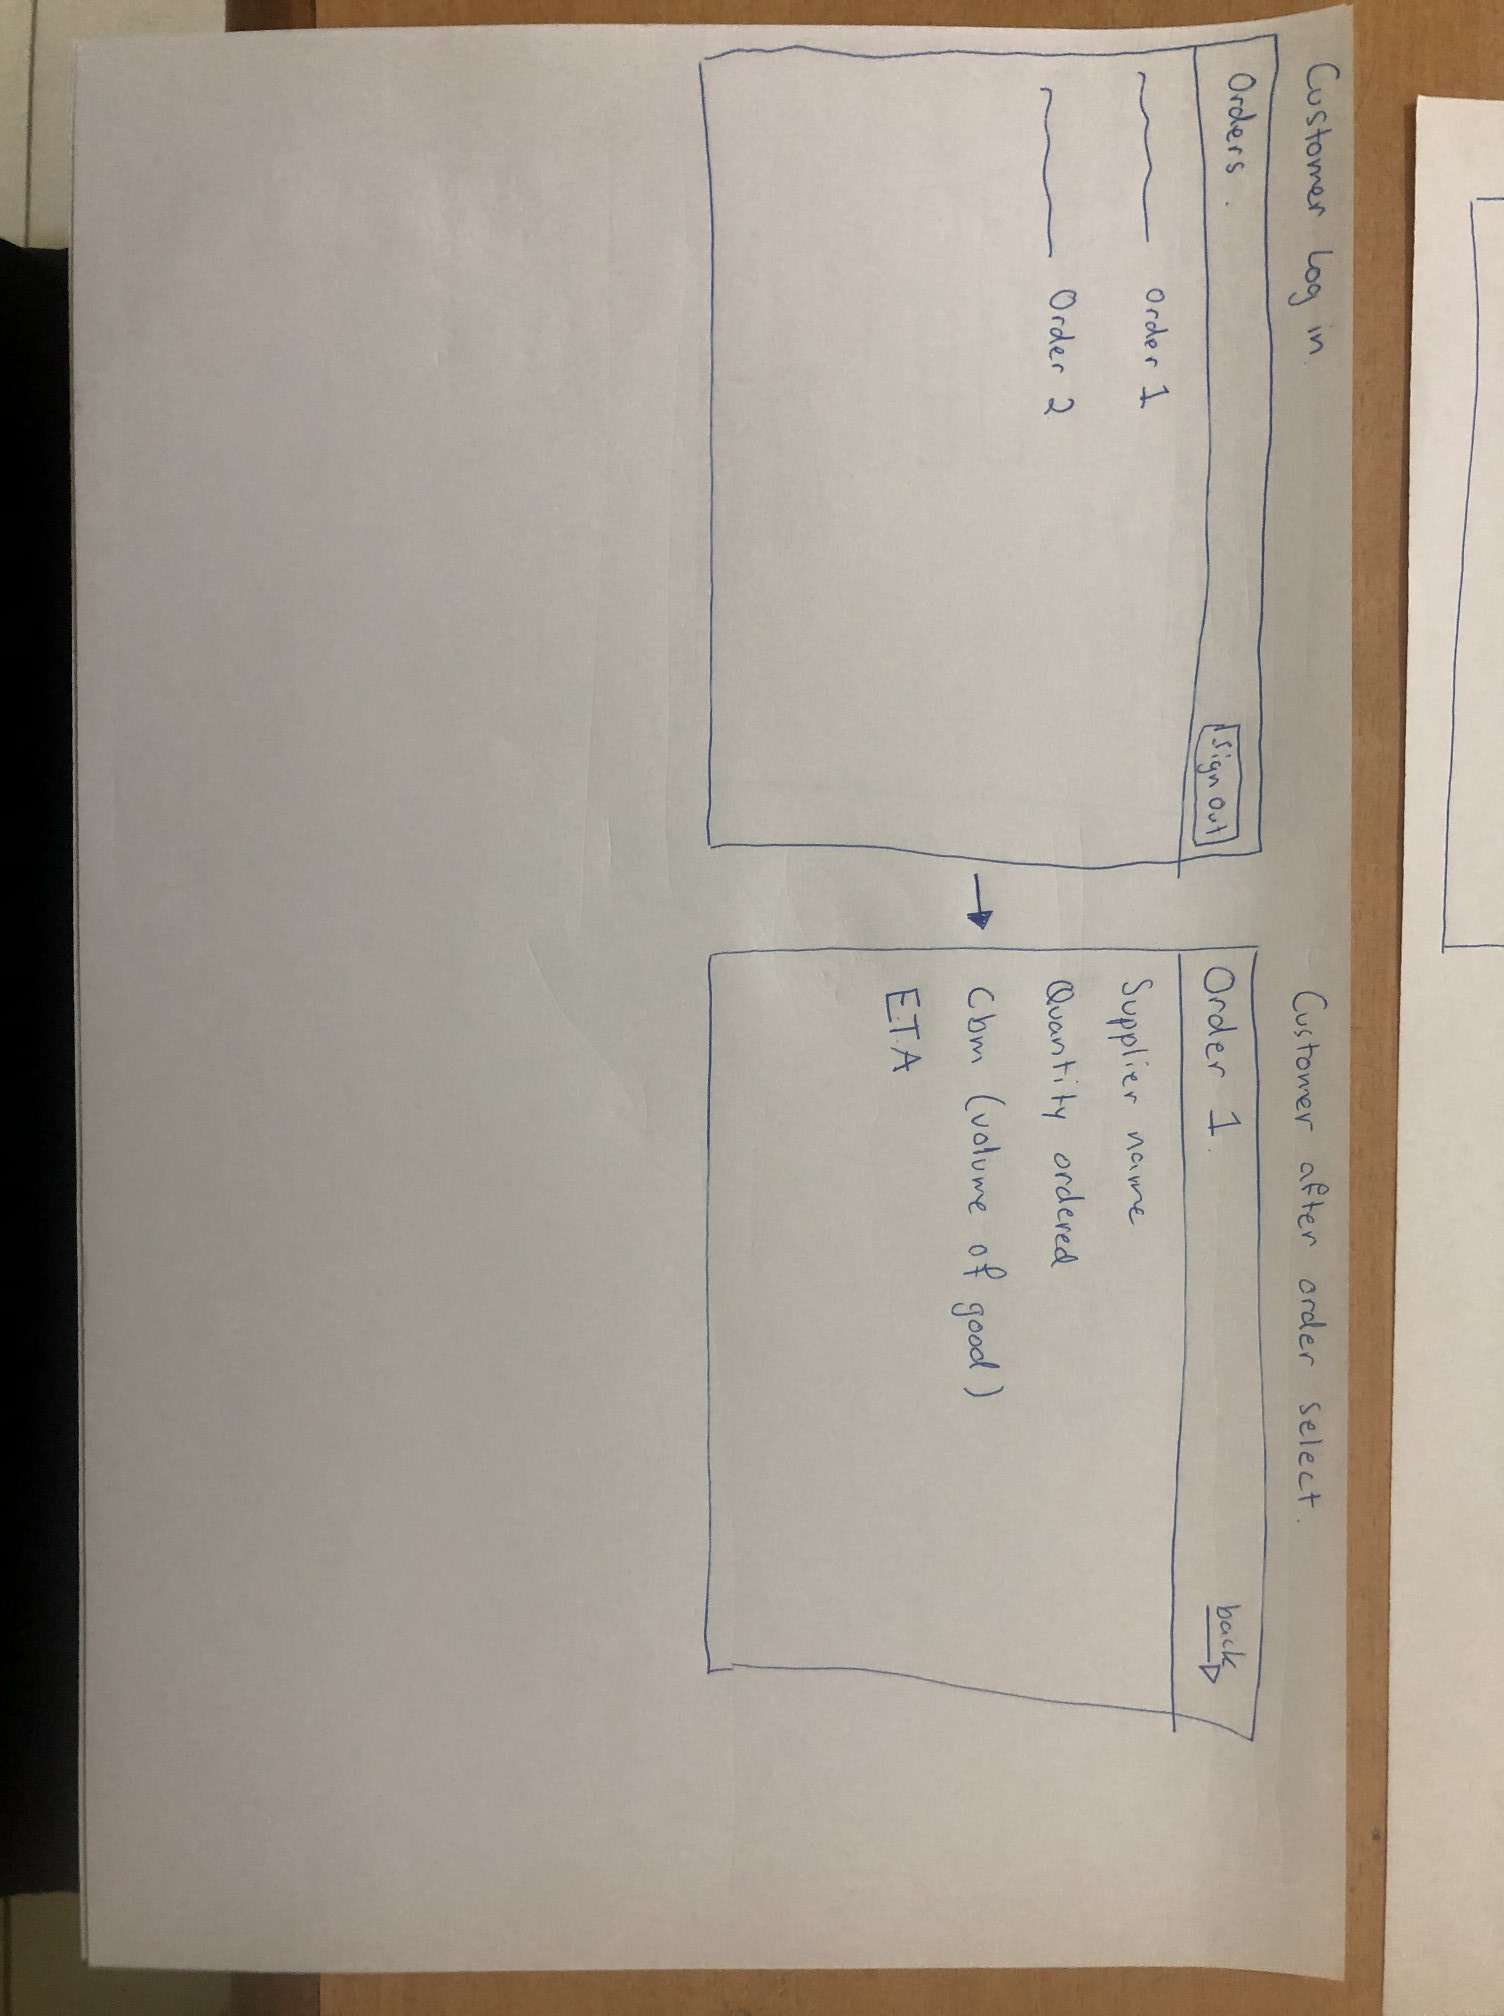 Customer Log in.
Orders.
Sign Out
Order 1
Order 2
Customer after order select.
Order 1.
back
Supplier name
Quantity ordered
Cbm (volume of good)
E.T.A